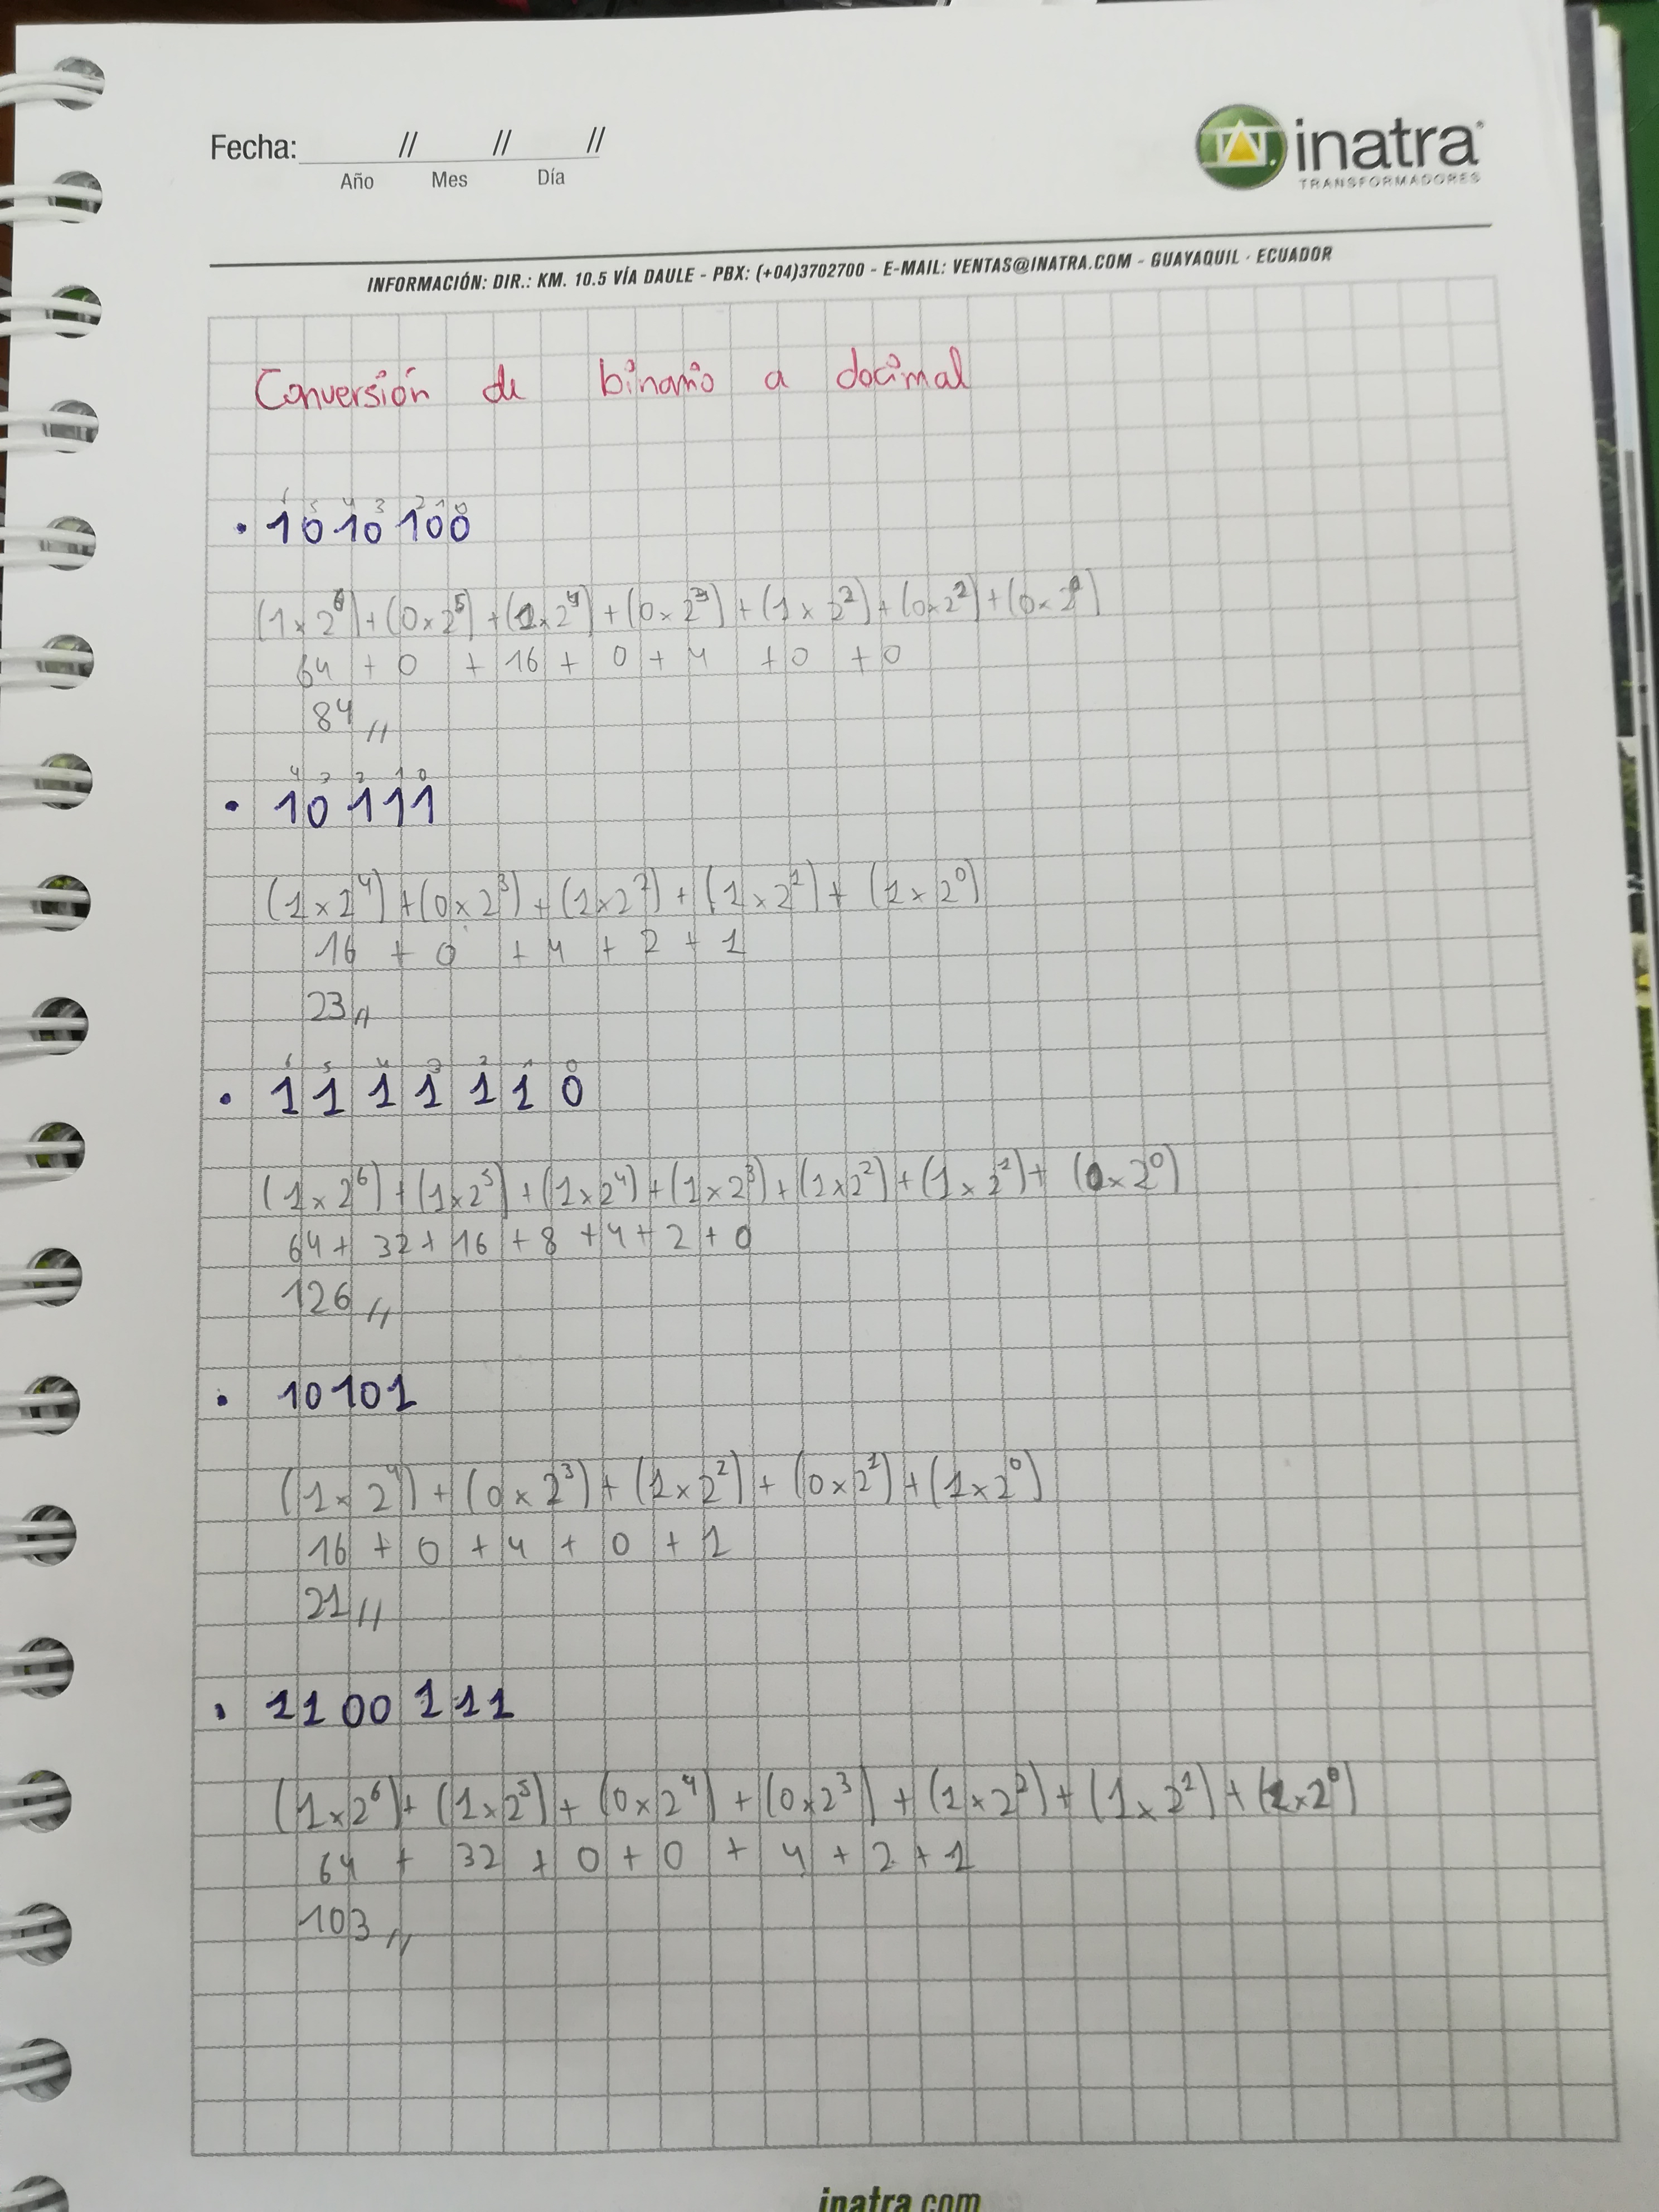 Fecha: // // //
Año Mes Día
inatra
TRANSFORMADORES
INFORMACIÓN: DIR.: KM. 10.5 VÍA DAULE - PBX: (+04)3702700 - E-MAIL: VENTAS@INATRA.COM - GUAYAQUIL - ECUADOR
Conversión de binario a decimal
6 5 4 3 2 1 0
• 1010100
(1x2⁶)+(0x2⁵)+(1x2⁴)+(0x2³)+(1x2²)+(0x2²)+(0x2⁰)
64 + 0 + 16 + 0 + 4 + 0 + 0
84 //
4 3 2 1 0
• 10111
(1x2⁴)+(0x2³)+(1x2²)+(1x2¹)+(1x2⁰)
16 + 0 + 4 + 2 + 1
23 //
6 5 4 3 2 1 0
• 1111110
(1x2⁶)+(1x2⁵)+(1x2⁴)+(1x2³)+(1x2²)+(1x2¹)+(0x2⁰)
64 + 32 + 16 + 8 + 4 + 2 + 0
126 //
• 10101
(1x2⁴)+(0x2³)+(1x2²)+(0x2¹)+(1x2⁰)
16 + 0 + 4 + 0 + 1
21 //
• 1100111
(1x2⁶)+(1x2⁵)+(0x2⁴)+(0x2³)+(1x2²)+(1x2¹)+(1x2⁰)
64 + 32 + 0 + 0 + 4 + 2 + 1
103 //
inatra.com